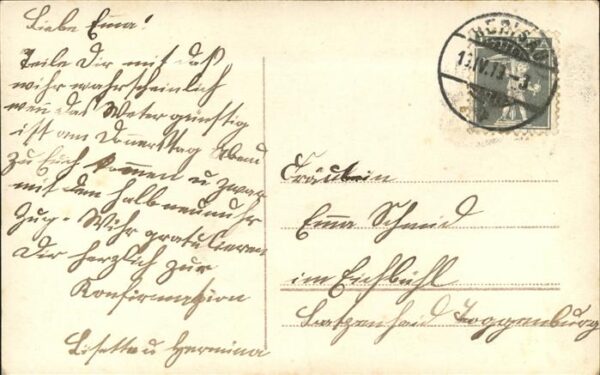 Liebe Emma!
Teile Dir mit daß
wihr wahrscheinlich
wen das Weter günstig
ist am Donnerstag Abend
zu Euch kommen u zwar
mit dem halb neunuhr
Zug. Wihr gratulieren
Dir herzlich zur
Konfirmation
Lisette u Hermina
HERISAU
Fräulein
Emma Schmid
im Eichbühl
Batzenheid Toggenburg